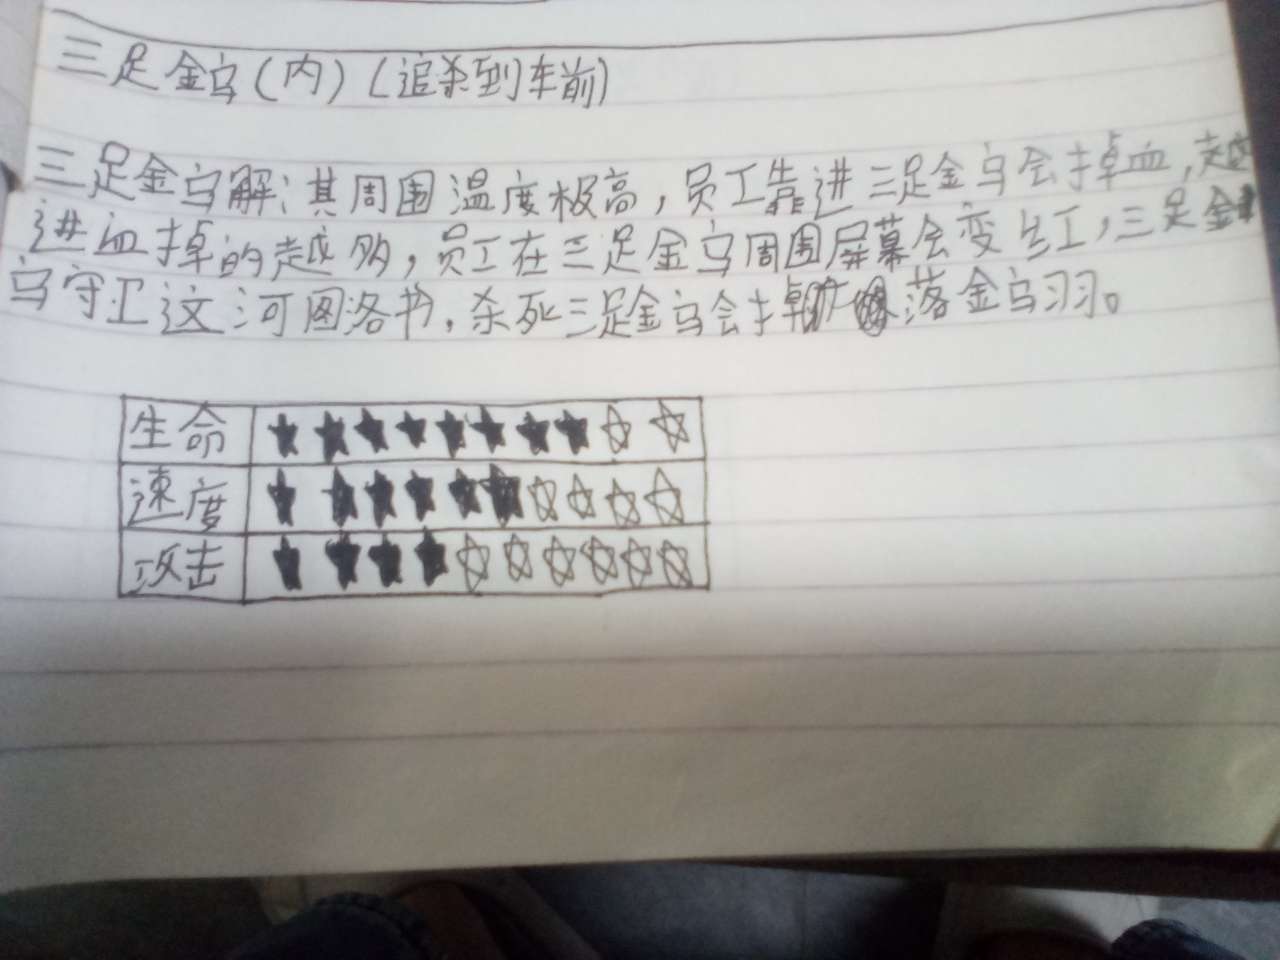 三足金乌(内)(追杀到车前)
三足金乌解:其周围温度极高,员工靠进三足金乌会掉血,越
进血掉的越多,员工在三足金乌周围屏幕会变红,三足金
乌守卫这河图洛书,杀死三足金乌会掉落金乌羽。
生命 ★★★★★★★★☆☆
速度 ★★★★★★☆☆☆☆
攻击 ★★★★☆☆☆☆☆☆